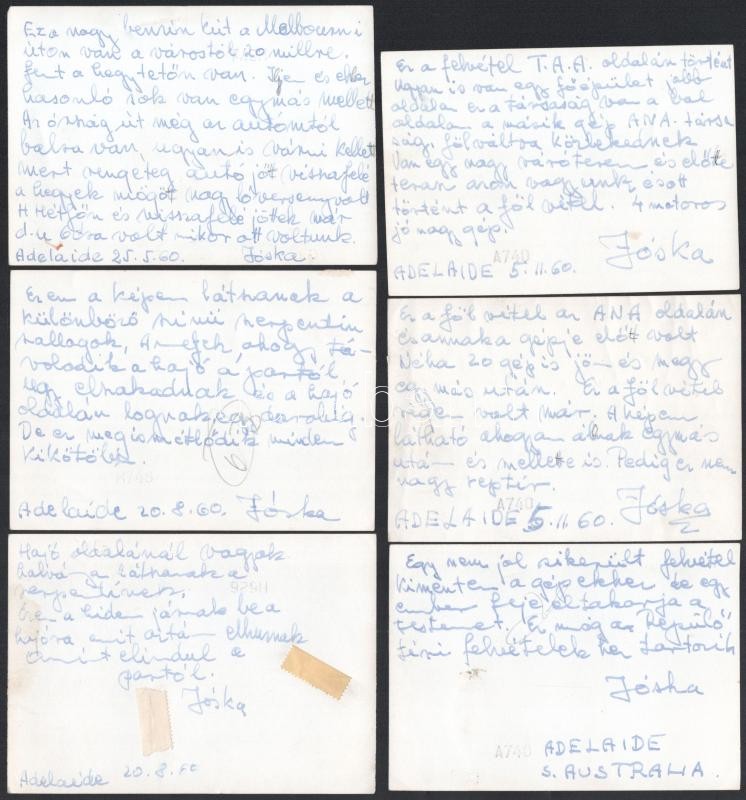 Ez a nagy benzin kút a Melbourni
úton van a várostól 20 millre.
fent a hegytetőn van. Ilyen és ehez
hasonló sok van egymás mellett
Az ország út még az autómtól
balra van, ugyan is várni kellet
mert rengeteg autó jött visszafelé
a hegyek mögött nagy lóverseny volt
Hétfőn és visszafelé jöttek már
d.u 6 óra volt mikor ott voltunk.
Adelaide 25.5.60. Jóska
Ezen a képen látszanak a
különböző színű szerpentin
szallagok, Amelyek ahogy tá-
volodik a hajó a parttól
úgy elszakadnak és a hajó
oldalán lógnak egy darabig.
De ez megismétlődik minden
kikötőben.
Adelaide 20.8.60. Jóska
Hajó oldalánál vagyok
halványan látszanak a
szerpentinek.
Ezen a hiden járnak be a
hajóra amit aztán elhuznak
amint elindul a
parttól.
Jóska
Adelaide 20.8.60
Ez a felvétel T.A.A. oldalán történt
ugyan is van egy főépület jobb
oldalon ez a társaság van a bal
oldalon a másik gép ANA. társa
ság, fölváltva közlekednek
Van egy nagy váróterem és előtte
terasz azon vagyunk, és ott
történt a föl vétel. 4 motoros
jó nagy gép.
A740
Jóska
ADELAIDE 5.11.60.
Ez a föl vétel az ANA oldalán
és annak a gépje előtt volt
Néha 20 gép is jön és megy
egymás után. Ez a föl vétel
régen volt már. A képen
látható ahogyan állnak egymás
után és mellett is. Pedig ez nem
nagy reptér.
A740
Jóska
ADELAIDE 5.11.60.
Egy nem jól sikerült felvétel
Kimentem a gépekhez de egy
ember feje eltakarja a
testemet. Ez még az Repülő
téri felvételek hez tartozik
Jóska
A740
ADELAIDE
S. AUSTRALIA.